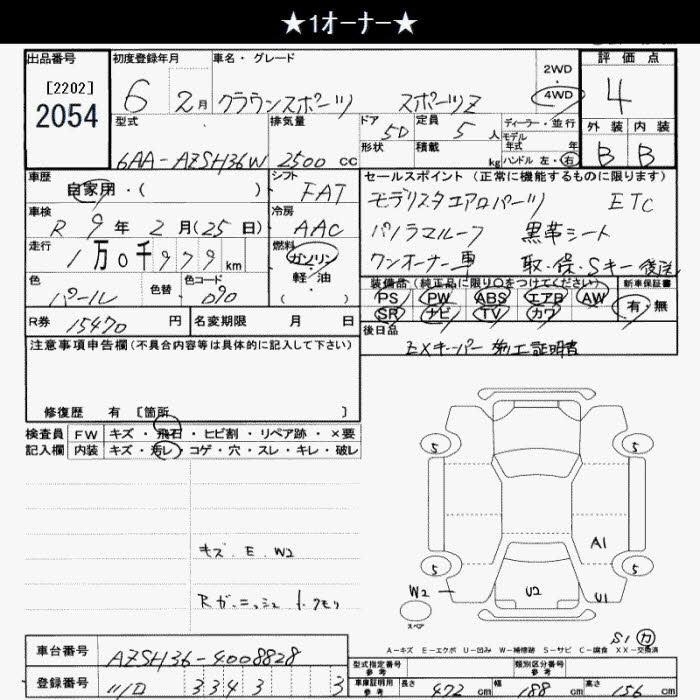 ★1オーナー★
出品番号 初度登録年月 車名・グレード 2WD・4WD 評価点
[2202]
2054
6 2月 クラウンスポーツ スポーツZ 4
型式 排気量 ドア 5D 定員 5人 ディーラー・並行
モデル年式 年
外装 内装
6AA-AZSH36W 2500cc 形状 積載 kg ハンドル 左・右 B B
車歴 自家用・( ) シフト FAT
セールスポイント (正常に機能するものに限ります)
車検 R 9年 2月(25日) 冷房 AAC
モデリスタエアロパーツ ETC
パノラマルーフ 黒革シート
ワンオーナー車 取・保・Sキー後送
走行 1万0千979km 燃料 ガソリン・軽・油 ( )
色 パール 色替 色コード 090
装備品(純正品に限り○をつけてください) 新車保証書
PS PW ABS エアB AW 有・無
SR ナビ TV カワ
R券 15470円 名変期限 月 日
後日品 EXキーパー 施工証明書
注意事項申告欄(不具合内容等は具体的に記入して下さい)
修復歴 有 [箇所 ]
検査員 FW キズ・飛石・ヒビ割・リペア跡・×要
記入欄 内装 キズ・汚レ・コゲ・穴・スレ・キレ・破レ
キズ. E. W2
Rガーニッシュ
5 5
A1
5 5
W2 U2 U1
スペア
S1 カ
A-キズ E-エクボ U-凹み W-補修跡 S-サビ C-腐食 XX-交換済
車台番号 AZSH36-4008828
型式指定番号 参考 類別区分番号 参考
登録番号 334 3 3
車庫証明用 参考 長さ 472cm 幅 188cm 高さ 156cm